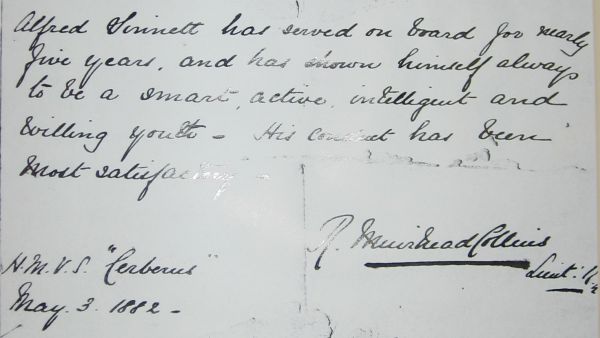 Alfred Sinnett has served on board for nearly
five years, and has shown himself always
to be a smart, active, intelligent and
willing youth - His conduct has been
most satisfactory -
R. Muirhead Collins
H.M.V.S. "Cerberus"
Lieut:
May. 3. 1882 -